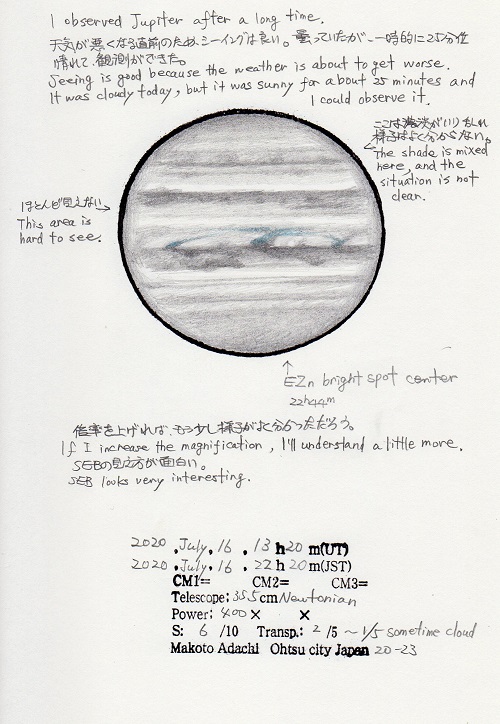 I observed Jupiter after a long time.
天気が悪くなる直前のため、シーイングは良い。曇っていたが、一時的に25分位
晴れて、観測ができた。
Seeing is good because the weather is about to get worse.
It was cloudy today, but it was sunny for about 25 minutes and
I could observe it.
ここは濃淡が入りみだれ
様子はよく分からない。
The shade is mixed
here, and the
situation is not
clear.
ほとんど見えない
This area is
hard to see.
↑
EZn bright spot center
22h44m
倍率を上げれば、もう少し様子がよく分かっただろう。
If I increase the magnification, I'll understand a little more.
SEBの見え方が面白い。
SEB looks very interesting.
2020.July.16.13h20m(UT)
2020.July.16.22h20m(JST)
CM1= CM2= CM3=
Telescope; 35.5cm Newtonian
Power: 400× ×
S: 6 /10 Transp.: 2 /5 ~ 1/5 sometime cloud
Makoto Adachi Ohtsu city Japan 20-23